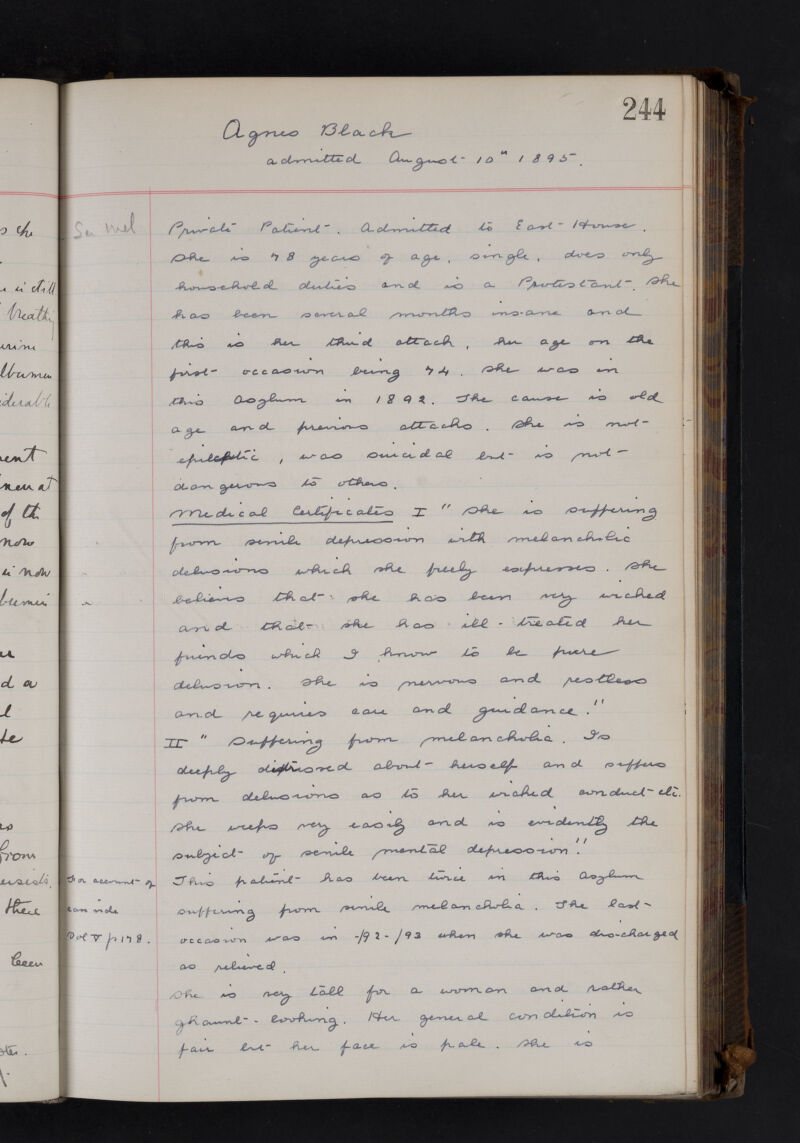 244
Agnes Black
admitted August 10th 1895.
Sen Mel
Private Patient. Admitted to East House.
She is 78 years of age, single, does only
household duties and is a Protestant. She
has been several months insane and
this is her third attack, her age on the
first occasion being 74. She was in
this asylum in 1892. The cause is old
age and previous attacks. She is not
epileptic, was suicidal but is not
dangerous to others.
Medical Certificates I "She is suffering
from senile depression with melancholic
delusions which she freely expresses. She
believes that she has been very wicked
and that she has ill-treated her
friends which I know to be pure
delusion. She is nervous and restless
and requires care and guidance."
II "Suffering from melancholia. Is
deeply distressed about herself and suffers
from delusions as to her wicked conduct etc.
She weeps very easily and is evidently the
subject of senile mental depression."
This patient has been twice in this asylum
suffering from senile melancholia. The last
occasion was in -/92-/93 when she was discharged
as relieved.
For account of
case vide
Vol V p 178.
She is very tall for a woman and rather
ghaunt-looking. Her general condition is
fair but her face is pale. She is
s she
breathing
urine
albumen
considerable
ent
of the
now
is now
d a
from
there
been